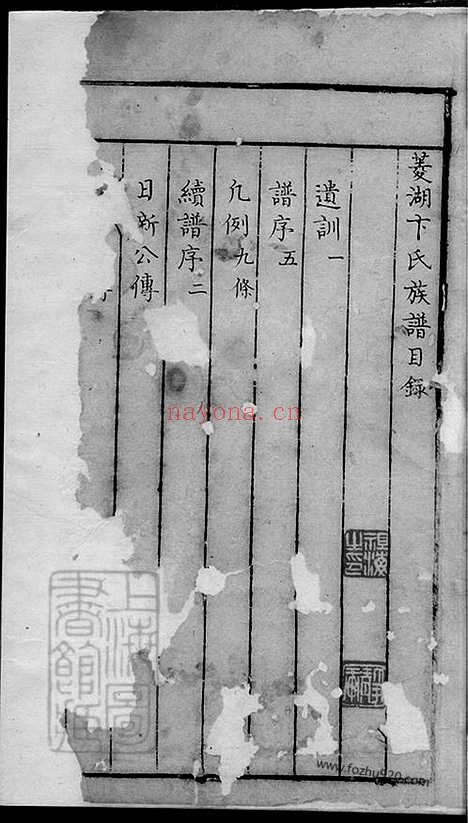 菱湖卞氏族譜目錄
遺訓一
譜序五
凡例九條
續譜序二
日新公傳
nayona.cn
上海圖書館藏
www.fozhu920.com